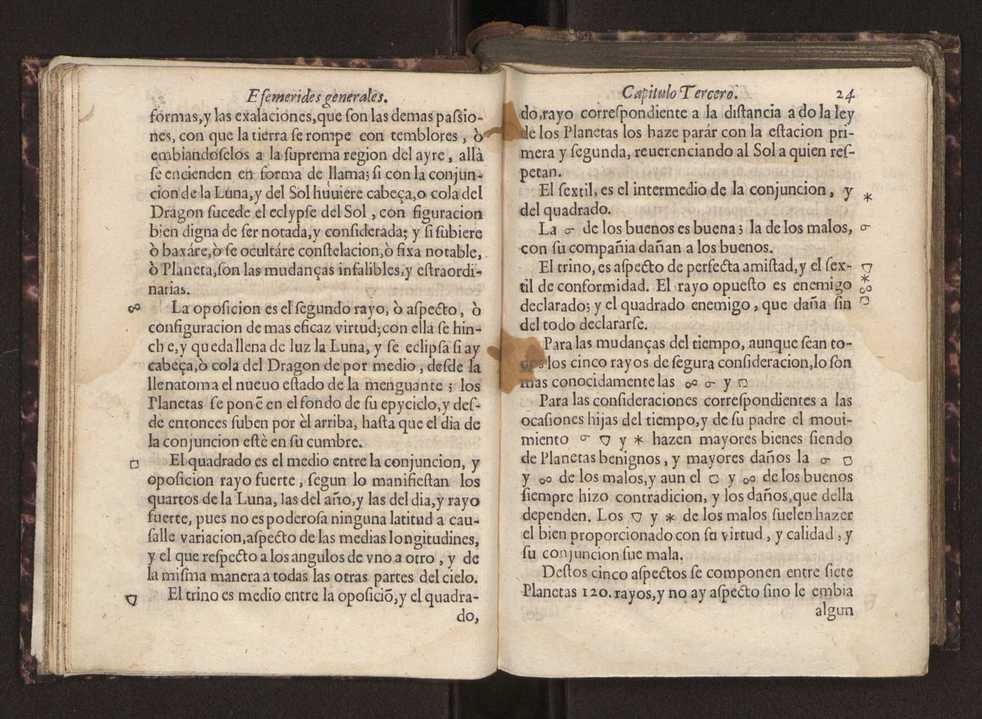 Efemerides generales.
formas,y las exalaciones,que ſon las demas paſsio-
nes, con que la tierra ſe rompe con temblores, ò
embiandoſelos a la ſuprema region del ayre, allà
ſe encienden en forma de llama; ſi con la conjun-
cion de la Luna,y del Sol huuiere cabeça,o cola del
Dragon ſucede el eclypſe del Sol, con figuracion
bien digna de ſer notada,y conſiderada; y ſi ſubiere
ò baxáre,ò ſe ocultáre conſtelacion,ò fixa notable,
ò Planeta,ſon las mudanças infalibles,y eſtraordi-
narias.
☍ La opoſicion es el ſegundo rayo, ò aſpecto, ò
configuracion de mas eficaz virtud;con ella ſe hin-
che,y queda llena de luz la Luna, y ſe eclipſa ſi ay
cabeça,ò cola del Dragon de por medio, deſde la
llenatoma el nueuo eſtado de la menguante; los
Planetas ſe ponẽ en el fondo de ſu epyciclo,y deſ-
de entonces ſuben por él arriba, haſta que el dia de
la conjuncion eſtè en ſu cumbre.
□ El quadrado es el medio entre la conjuncion, y
opoſicion rayo fuerte, ſegun lo manifieſtan los
quartos de la Luna, las del año,y las del dia,y rayo
fuerte, pues no es poderoſa ninguna latitud a cau-
ſalle variacion,aſpecto de las medias longitudines,
y el que reſpecto a los angulos de vno a otro, y de
la miſma manera a todas las otras partes del cielo.
▽ El trino es medio entre la opoſiciõ,y el quadra-
do,
Capitulo Tercero. 24
do,rayo correſpondiente a la diſtancia a do la ley
de los Planetas los haze parár con la eſtacion pri-
mera y ſegunda, reuerenciando al Sol a quien reſ-
petan.
El ſextil, es el intermedio de la conjuncion, y *
del quadrado.
La ☌ de los buenos es buena; la de los malos, ☌
con ſu compañia dañan a los buenos.
El trino,es aſpecto de perfecta amiſtad,y el ſex- ▽
til de conformidad. El rayo opueſto es enemigo * ☍
declarado; y el quadrado enemigo, que daña ſin □
del todo declararſe.
Para las mudanças del tiempo, aunque ſean to-
dos los cinco rayos de ſegura conſideracion,lo ſon
mas conocidamente las ☍ ☌ y □
Para las conſideraciones correſpondientes a las
ocaſiones hijas del tiempo,y de ſu padre el moui-
miento ☌ ▽ y * hazen mayores bienes ſiendo
de Planetas benignos, y mayores daños la ☌ □
y ☍ de los malos,y aun el □ y ☍ de los buenos
ſiempre hizo contradicion, y los daños,que della
dependen. Los ▽ y * de los malos ſuelen hazer
el bien proporcionado con ſu virtud, y calidad, y
ſu conjuncion fue mala.
Deſtos cinco aſpectos ſe componen entre ſiete
Planetas 120. rayos,y no ay aſpecto ſino le embia
algun